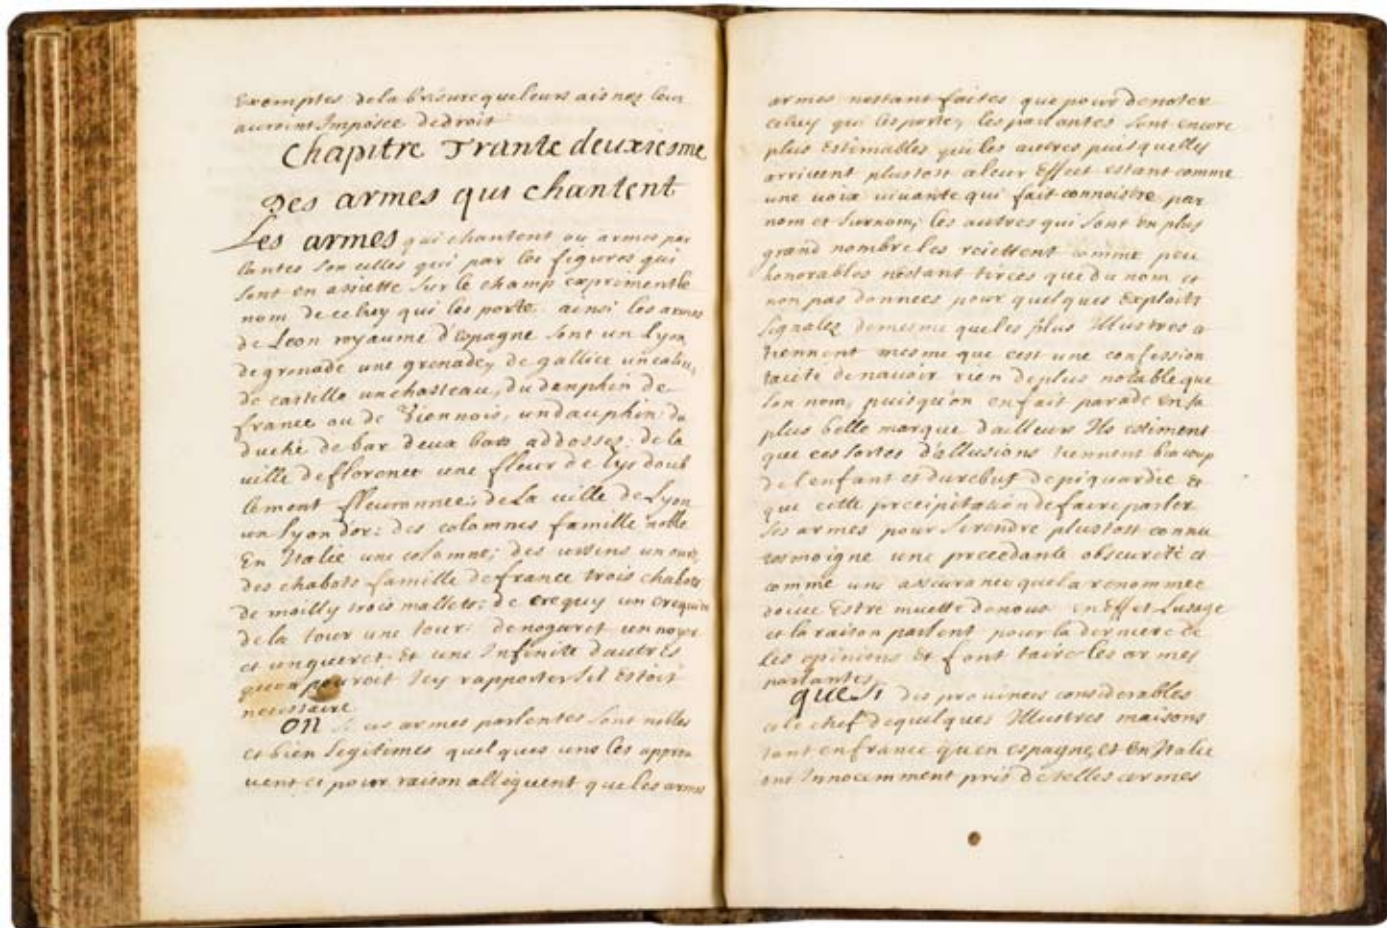 Exemptes de la brisure que leurs aisnez leur
auroint Imposee de droit
Chapitre Trante deuxiesme
Des armes qui chantent
Les armes qui chantent ou armes par
lantes son celles qui par les figures qui
sont en assiette sur le champ exprimentle
nom de celuy qui les porte. ainsi les armes
de Leon royaume d'espagne sont un Lyon
de grenade une grenade, de gallice un calice,
de castille un chasteau, du dauphin de
france ou de Viennois, un dauphin: du
duché de bar deux bars addosses: de la
ville de florence une fleur de lys doub
lement fleuronnee: de La ville de Lyon
un lyon dor: des colomnes famille noble
En Italie une colomne; des ursins un ours,
des chabots famille de france trois chabots
de mailly trois mallets: de crequy un crequier
de la tour une tour: de nogaret un noyer
et un gueret. Et une Infinité dautres
quon pouroit Icy rapporter sil Estoit
necessaire
On si ces armes parlentes sont nobles
et bien legitimes quelques uns les appreu
uent et pour raison alleguent que les armes
armes nestant faites que pour denoter
celuy qui les porte, les parlantes sont encore
plus Estimables que les autres puis quelles
arriuent plustost a leur Effect estant comme
une uoix uiuante qui fait connoistre par
nom et surnom; les autres qui sont en plus
grand nombre les reiettent comme peu
honorables nestant tirées que du nom et
non pas donnees pour quelques Exploits
signalez de mesme que les plus Illustres
tiennent mesme que cest une confession
tacite de nauoir rien de plus notable que
son nom, puisqu'on en fait parade en sa
plus belle marque dailleurs Ils estiment
que ces sortes d'allusions tiennent beaucoup
de l'enfant et du rebut de piquardie Et
que cette precipitation de faire parler
ses armes pour se rendre plustost connu
tesmoigne une precedante obscurité et
comme une asseurance que la renommee
doiue Estre muette de nous. en Effet Lusage
et la raison parlent pour la derniere de
ces opinions Et font taire les armes
parlantes.
Que si des prouinces considerables
et le chef de quelques Illustres maisons
tant en france qu'en espagne, et en Italie
ont Innocemment pris de telles armes